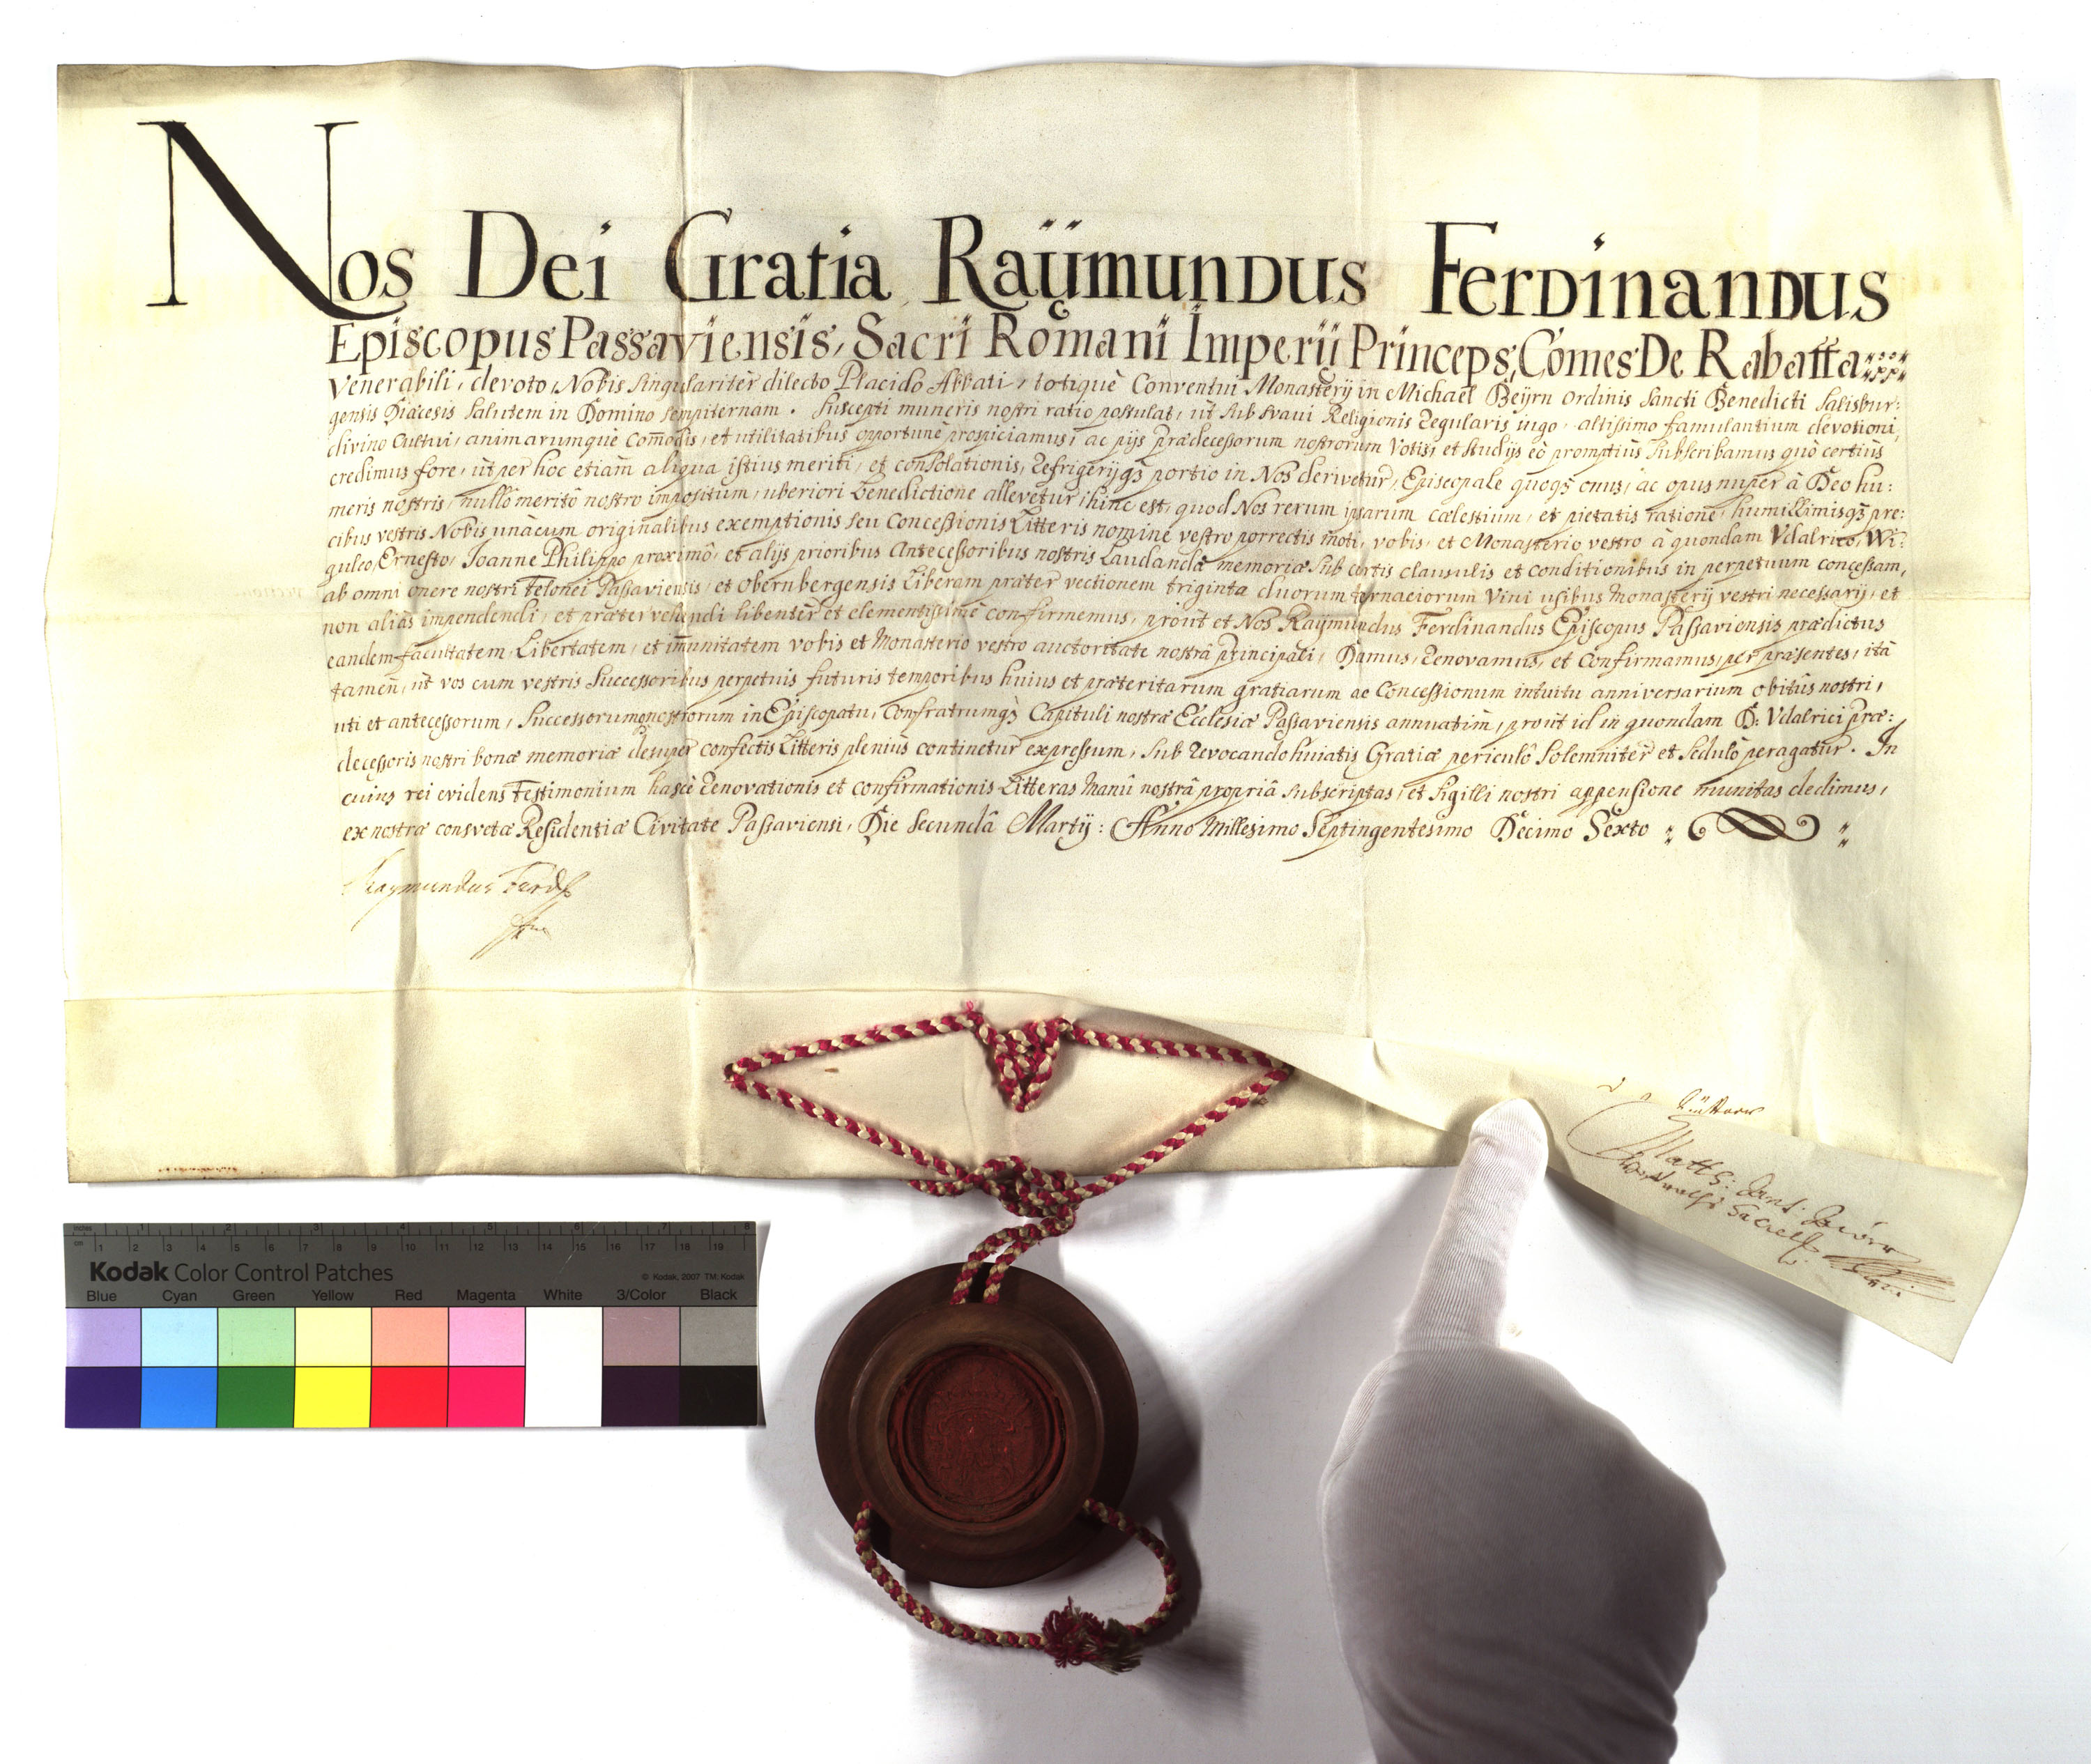 Nos Dei Gratia Raÿmundus Ferdinandus
Episcopus Passaviensis, Sacri Romani Imperÿ Princeps, Comes De Rabatta
Venerabili, devoto, Nobis singularitèr dilecto Placido Abbati, totiquè Conventui Monasterÿ in Michael Beÿrn ordinis Sancti Benedicti Salisbur:
gensis Diæcesis Salutem in Domino sempiternam. Suscepti muneris nostri ratio postulat, ut sub svavi Religionis regularis iugo, altissimo famulantium devotioni,
divino Cultui, animarumquè Com̄odis, et utilitatibus opportunè prospiciamus, ac pijs prædecessorum nostrorum Votis, et studÿs eò promptiùs subscribamus quò certiùs
credimus fore, ùt per hoc etiam aliqua istius meriti, et consolationis, refrigerÿq̃ portio in Nos derivetur, Episcopale quoq̃ onus, ac opus nuper à Deo hu:
meris nostris, nullô meritô nostro impositum, uberiori benedictione allevetur, hinc est, quod Nos rerum ipsarum cælestium, et pietatis ratione, humillimisq̃ pre:
cibus vestris Nobis unàcum originalibus exemptionis seu Concessionis Litteris nomine vestro porrectis moti, vobis, et Monasterio vestro à quondam Vdalrico, Wi:
guleo, Ernesto, Joanne Philippo proximô, et alÿs prioribus Antecessoribus nostris Laudandæ memoriæ sub certis clausulis et conditionibus in perpetuum concessam,
ab omni onere nostri Telonei Passaviensis, et Obernbergensis Liberam præter vectionem triginta duorum ternaciorum Vini usibus Monasterÿ vestri necessarÿ, et
non aliàs impendendi, et præter vehendi libentèr et clementissimè confirmemus, proùt et Nos Raÿmundus Ferdinandus Episcopus Passaviensis prædictus
eandem facultatem, Libertatem, et im̄unitatem vobis et Monasterio vestro auctoritate nostrâ principali, Damus, renovamus, et Confirmamus, per præsentes, ità
tamen, ùt vos cum vestris Successoribus perpetuis futuris temporibus huius et præteritarum gratiarum ac Concessionum intuitu anniversarium obitûs nostri,
uti et antecessorum, Successorumq̃ nostrorum in Episcopatu, Confratrumq̃ Capituli nostræ Ecclesiæ Passaviensis annuatìm, proùt id in quondam D: Vdalrici præ:
decessoris nostri bonæ memoriæ desuper confectis Litteris pleniùs continetur expressum, sub revocando huiatis Gratiæ periculô Solemnitèr et Sedulò peragatur. In
cuius rei evidens Testimonium hascè renovationis et confirmationis Litteras Manû nostrâ propriâ subscriptas, et sigilli nostri appensione munitas dedimus,
ex nostræ consvetæ Residentiæ Civitate Passaviensi, Die Secundâ Martÿ: Anno Millesimo Septingentesimo Decimo Sexto
Raymundus Ferd
inches 1 2 3 4 5 6 7 8
cm 1 2 3 4 5 6 7 8 9 10 11 12 13 14 15 16 17 18 19
Kodak Color Control Patches © Kodak, 2007 TM: Kodak
Blue Cyan Green Yellow Red Magenta White 3/Color Black